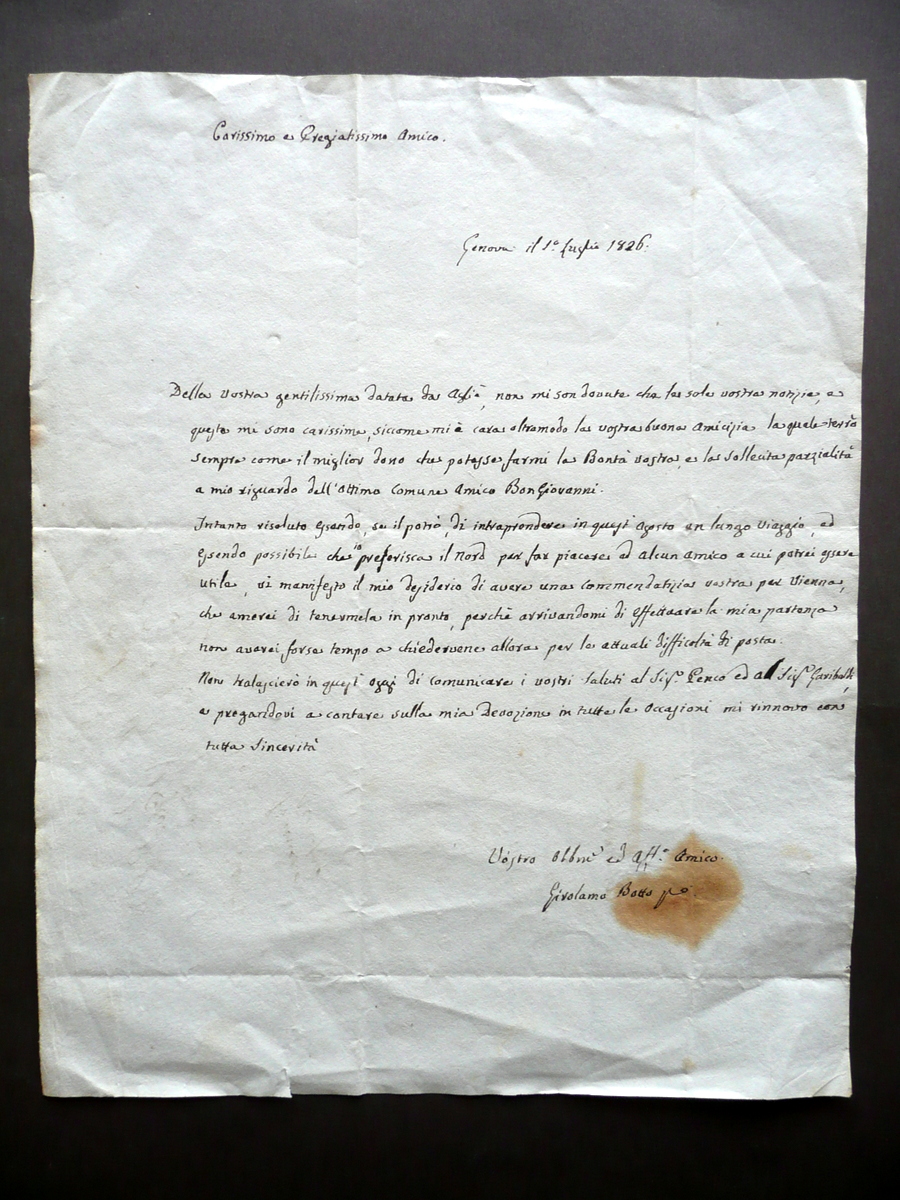 Carissimo e Pregiatissimo Amico.
Genova il 1.º Luglio 1826.
Della vostra gentilissima datata da Agliè, non mi son dovute che le sole vostre notizie, e
queste mi sono carissime, siccome mi è cara oltramodo la vostra buona Amicizia la quale terrò
sempre come il miglior dono che potesse farmi la Bontà vostra, e la sollecita parzialità
a mio riguardo dell'Ottimo Comune Amico BonGiovanni.
Intanto risoluto essendo, se il potrò, di intraprendere in quest'Agosto un lungo Viaggio, ed
essendo possibile che io preferisca il Nord per far piacere ad alcun Amico a cui potrei essere
utile, vi manifesto il mio desiderio di avere una commendatizia vostra per Vienna,
che amerei di tenermela in pronto, perchè arrivandomi di effettuare la mia partenza
non averei forse tempo a chiedervene allora per le attuali difficoltà di posta.
Non tralascierò in quest'oggi di comunicare i vostri saluti al Sig.r Penco ed al Sig.r Garibaldi,
e pregandovi a contare sulla mia Devozione in tutte le Occasioni mi rinnovo con
tutta sincerità
Vostro Obbmo ed Aff.º Amico.
Girolamo Botto